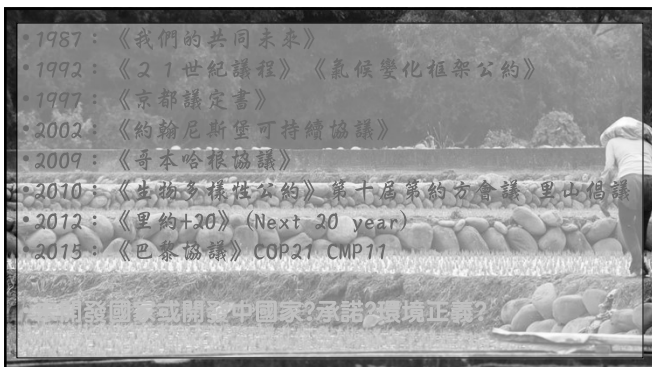 •1987：《我們的共同未來》
•1992：《２１世紀議程》《氣候變化框架公約》
•1997：《京都議定書》
•2002：《約翰尼斯堡可持續協議》
•2009：《哥本哈根協議》
•2010：《生物多樣性公約》第十屆第約方會議 里山倡議
•2012：《里約+20》(Next 20 year)
•2015：《巴黎協議》COP21 CMP11
開發國家或開發中國家?承諾?環境正義?